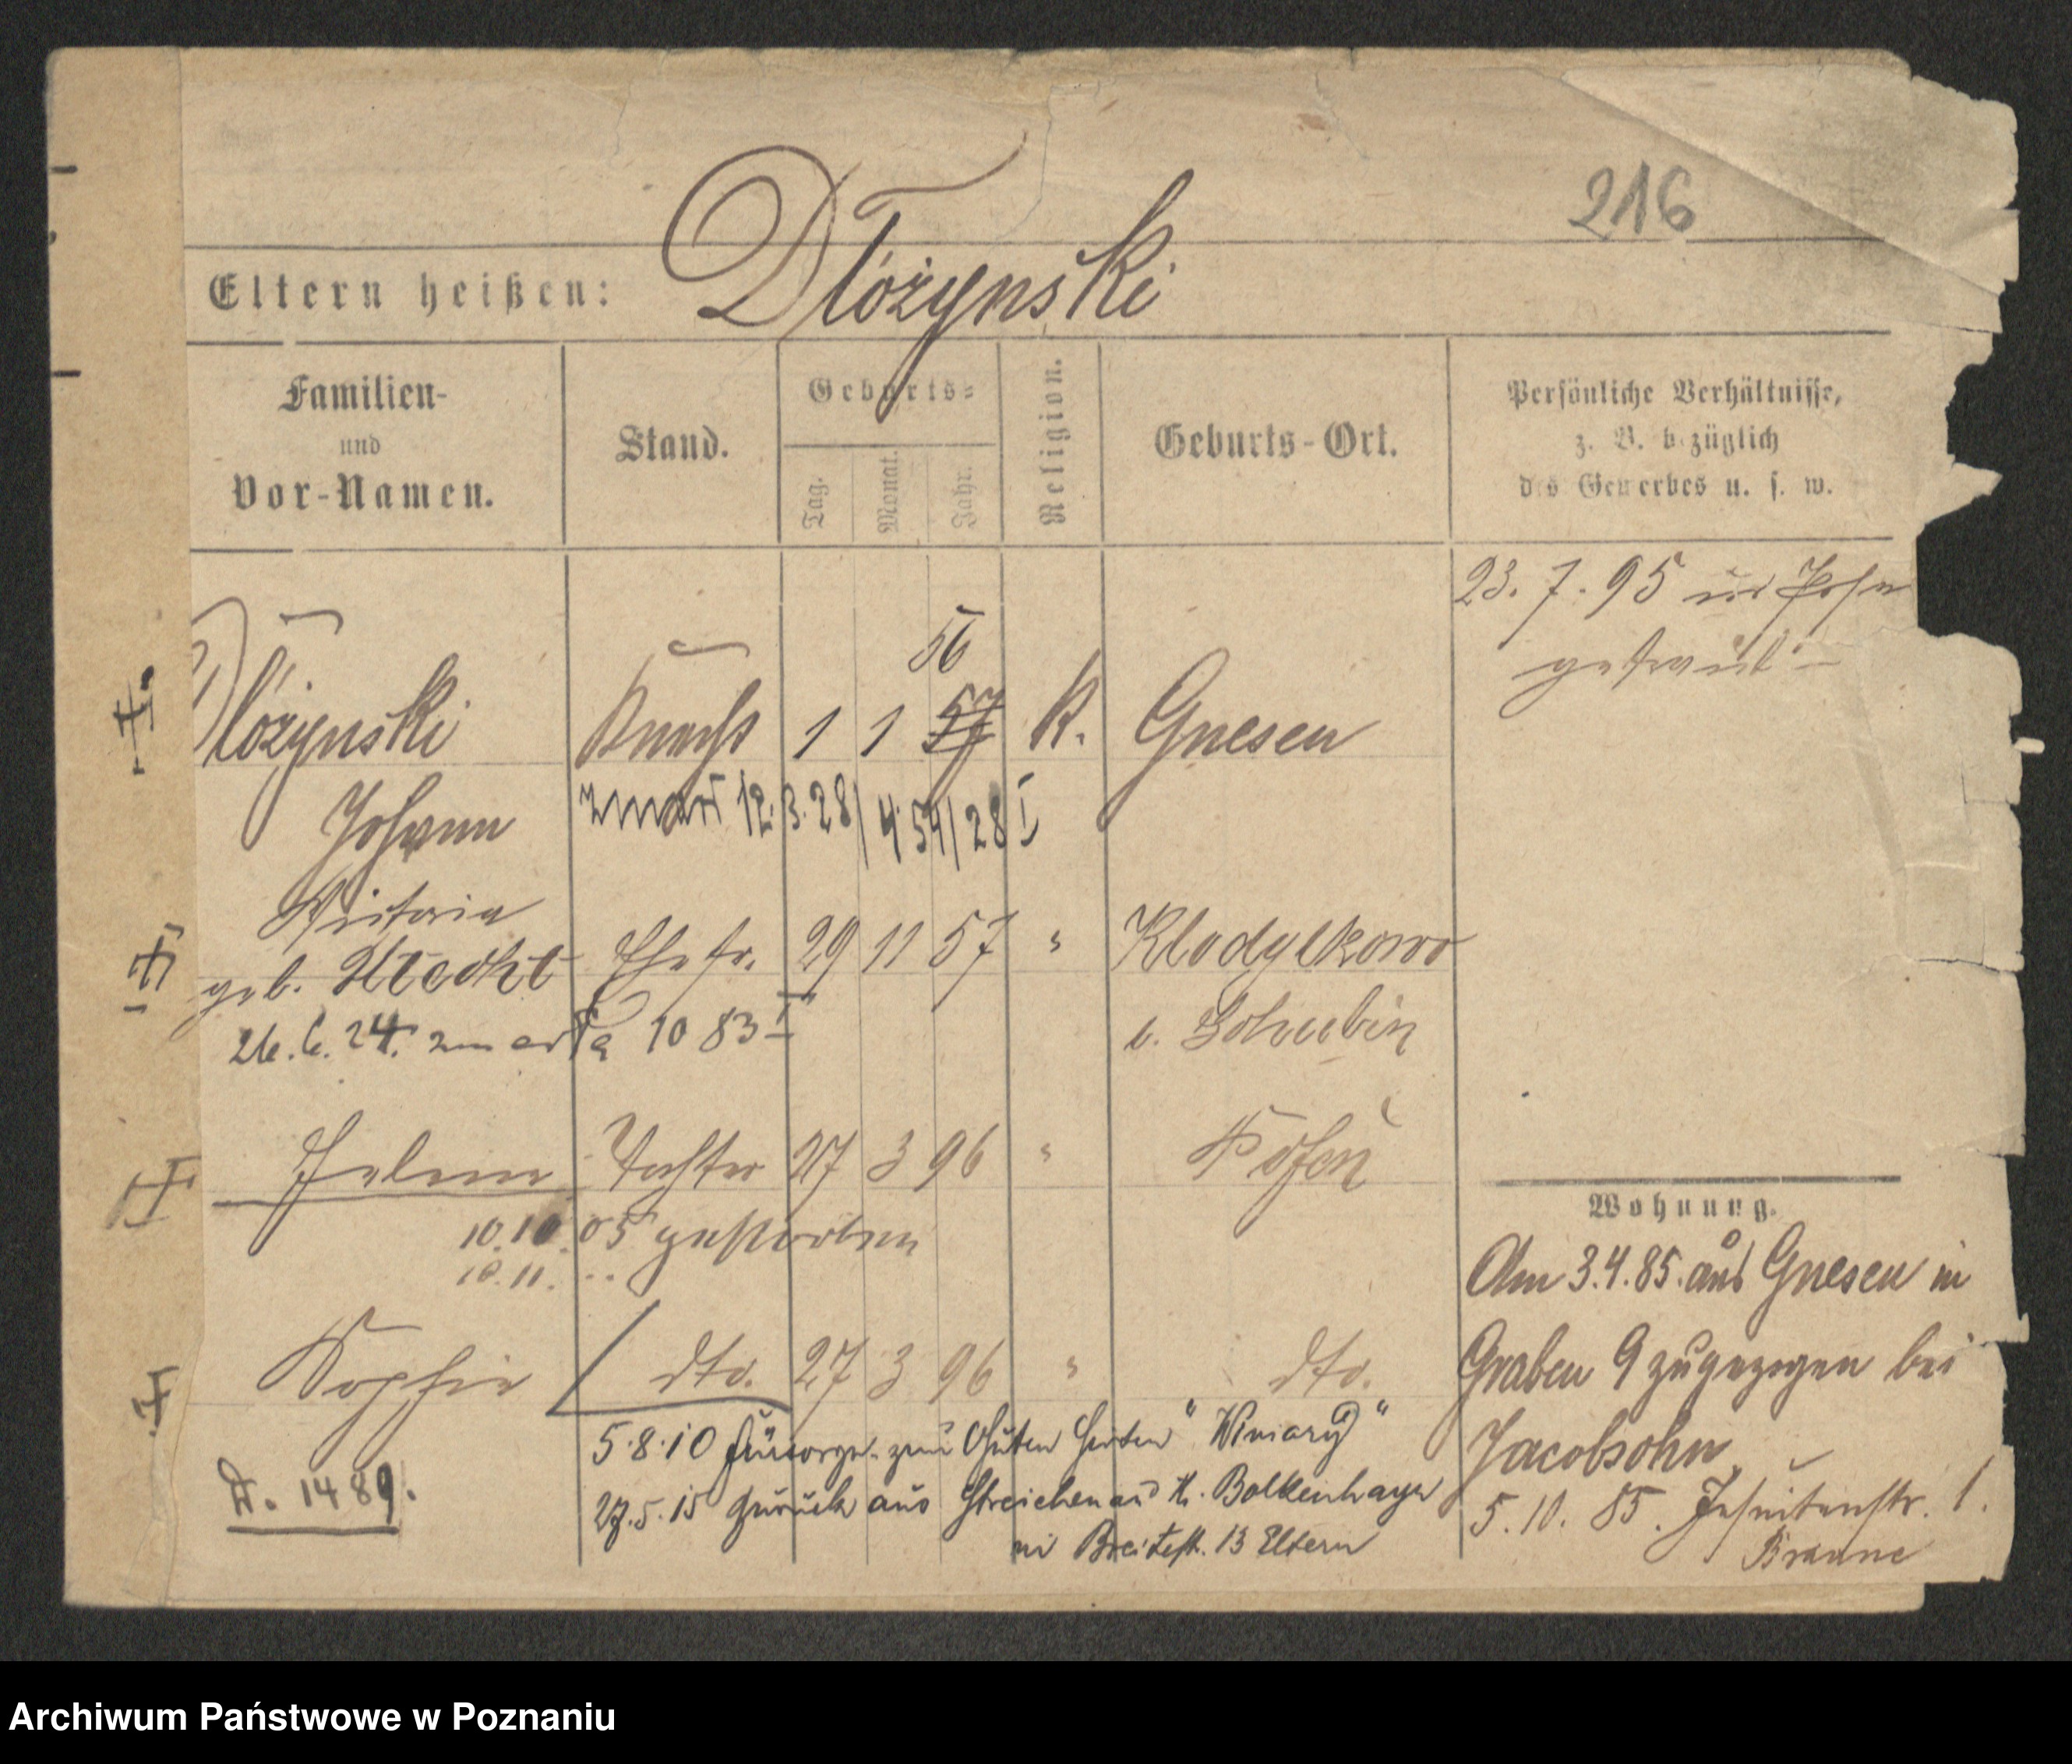 216
Eltern heißen: Dłóżynski
Familien-
und
Vor-Namen.
Stand.
Geburts-
Tag.
Monat.
Jahr.
Religion.
Geburts-Ort.
Persönliche Verhältnisse,
z. B. bezüglich
des Gewerbes u. s. w.
23. 7. 95 in Posen
getraut
56
Dłóżynski Knecht 1 1 57 K. Gnesen
Johann
zmarł 12. 3. 28 / 4 54/28 I
Victoria
geb. Ehefr. 29 11 57 " 
26. 6. 24. zmarła 1083 I
Schubin
Helene Tochter 27 3 96 " Posen
10. 10. 05 gestorben
10. 11.
Sophie dto. 27 3 96 " dto.
5.8.10 Fürsorge zum Guten Hirten "Winiary"
27.5.15 zurück aus K. Bolkenhayn
in Breitestr. 13 Eltern
1489.
Wohnung.
Am 3.4.85. aus Gnesen in
Graben 9 zugezogen bei
Jacobsohn
5. 10. 85. Jesuitenstr. 1.
Braune
Archiwum Państwowe w Poznaniu